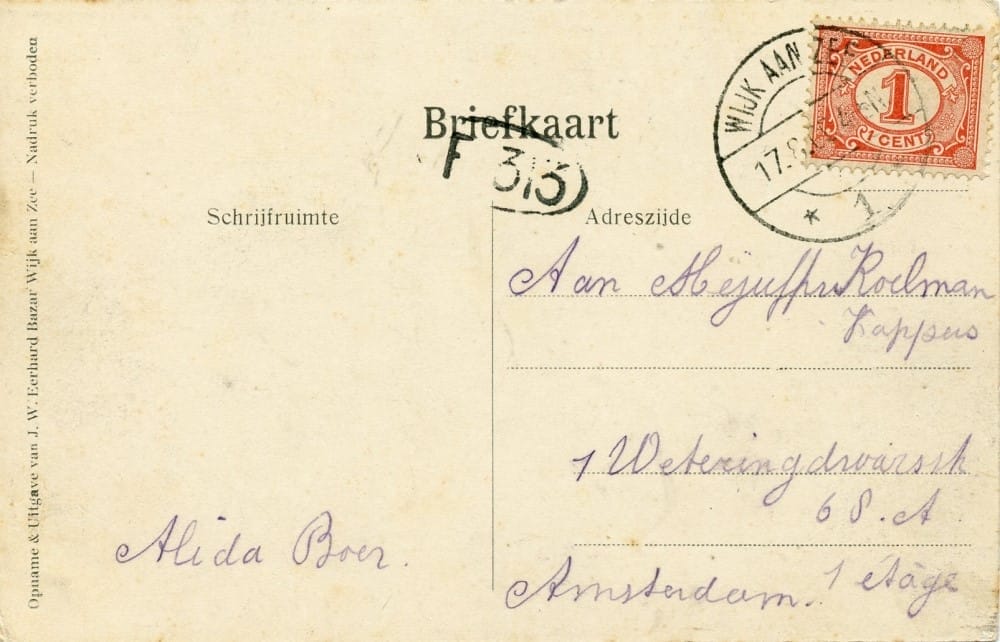 Opname & Uitgave van J. W. Eerhard Bazar Wijk aan Zee — Nadruk verboden
Briefkaart
F 313
WIJK AAN ZEE
17.8
* 1
NEDERLAND
1
1 CENT
Schrijfruimte
Adreszijde
Aan Mejuffr Koelman
Kappers
1 Weteringdwarsstr
68. A
Amsterdam. 1 etage
Alida Boer.